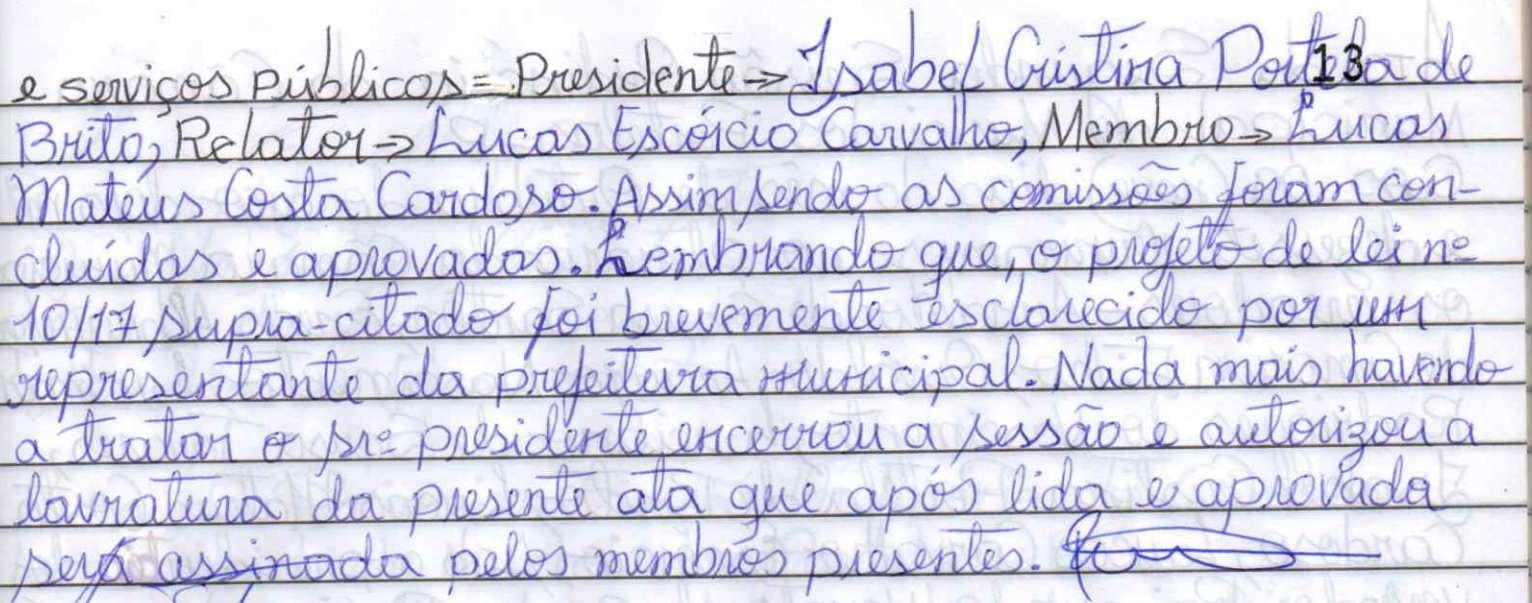 e serviços Públicos = Presidente → Isabel Cristina Portela de
13
Brito, Relator → Lucas Escórcio Carvalho, Membro → Lucas
Mateus Costa Cardoso. Assim sendo as comissões foram con-
cluídas e aprovadas. Lembrando que, o projeto de lei nº
10/17 supra-citado foi brevemente esclarecido por um
representante da prefeitura municipal. Nada mais havendo
a tratar o srº presidente encerrou a sessão e autorizou a
lavratura da presente ata que após lida e aprovada
será assinada pelos membros presentes.